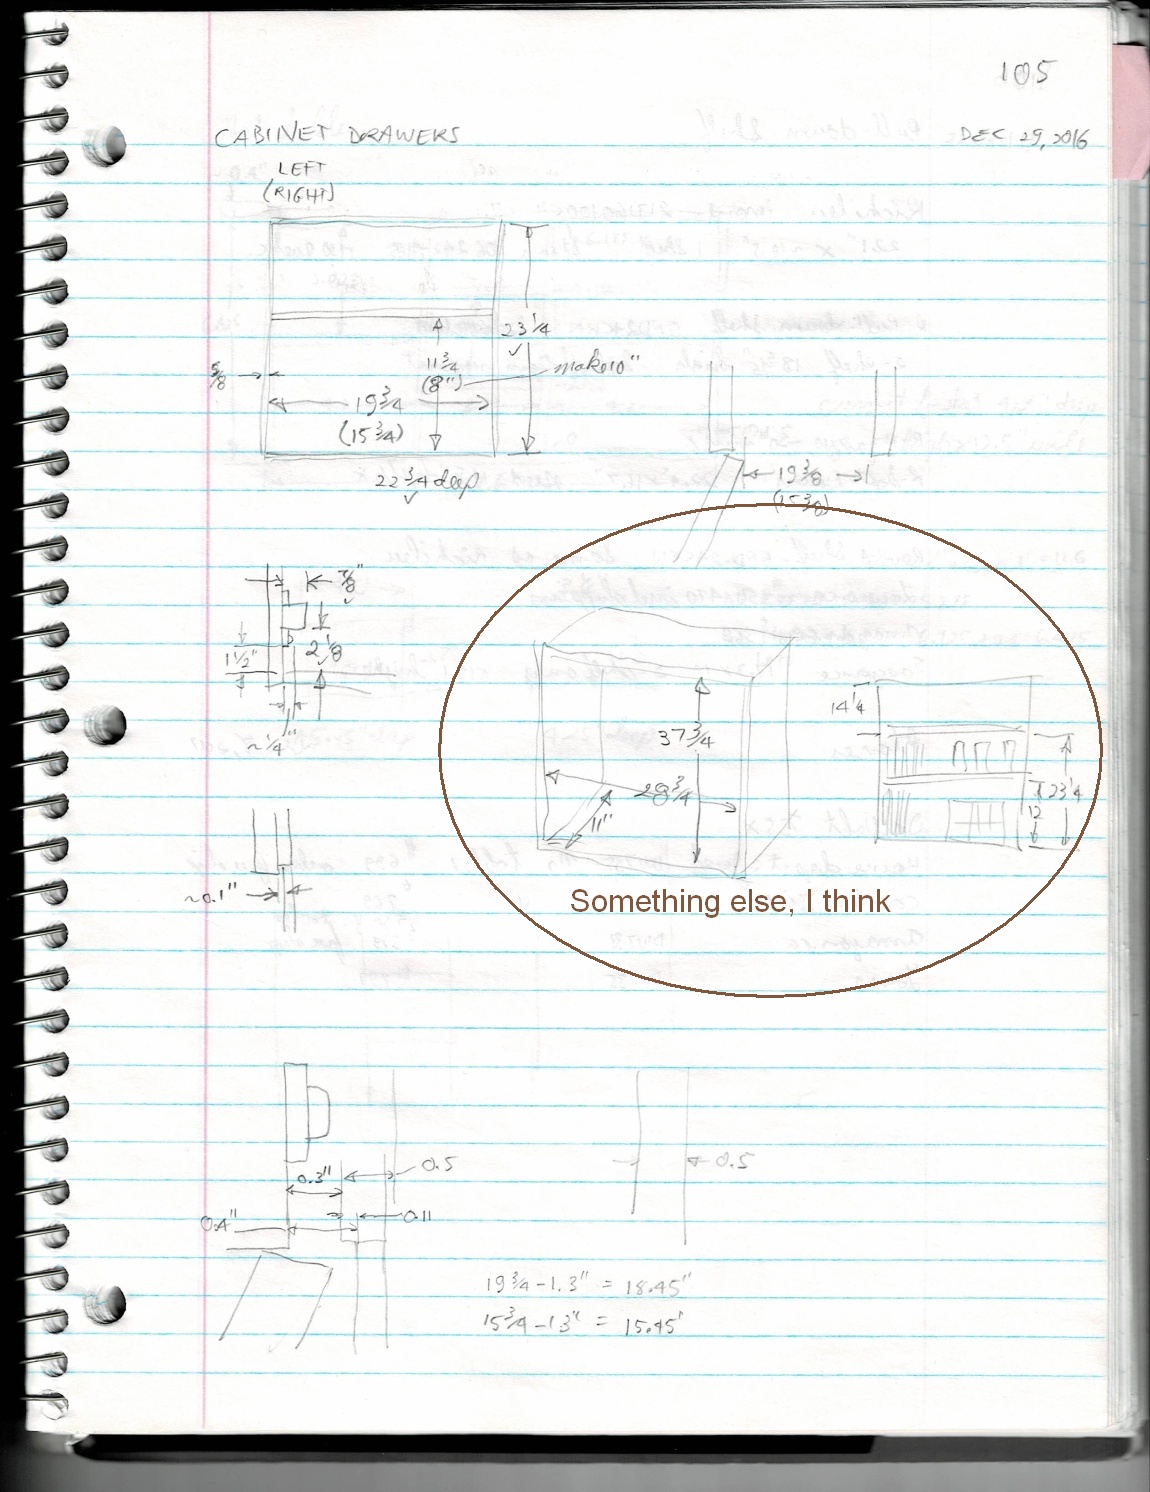 105
CABINET DRAWERS
DEC 29, 2016
LEFT
(RIGHT)
23 1/4
✓
11 3/4
(8")
make 10"
5/8
19 3/4
(15 3/4)
22 3/4 deep
✓
19 3/8
(15 3/8)
7/8"
✓
2 1/8
1 1/2"
~1/4"
14 1/4
37 3/4
28 3/4
11"
23 1/4
12
~0.1"
Something else, I think
0.5
0.3"
0.5
0.4"
0.11
19 3/4 - 1.3" = 18.45"
15 3/4 - 1.3" = 15.45"